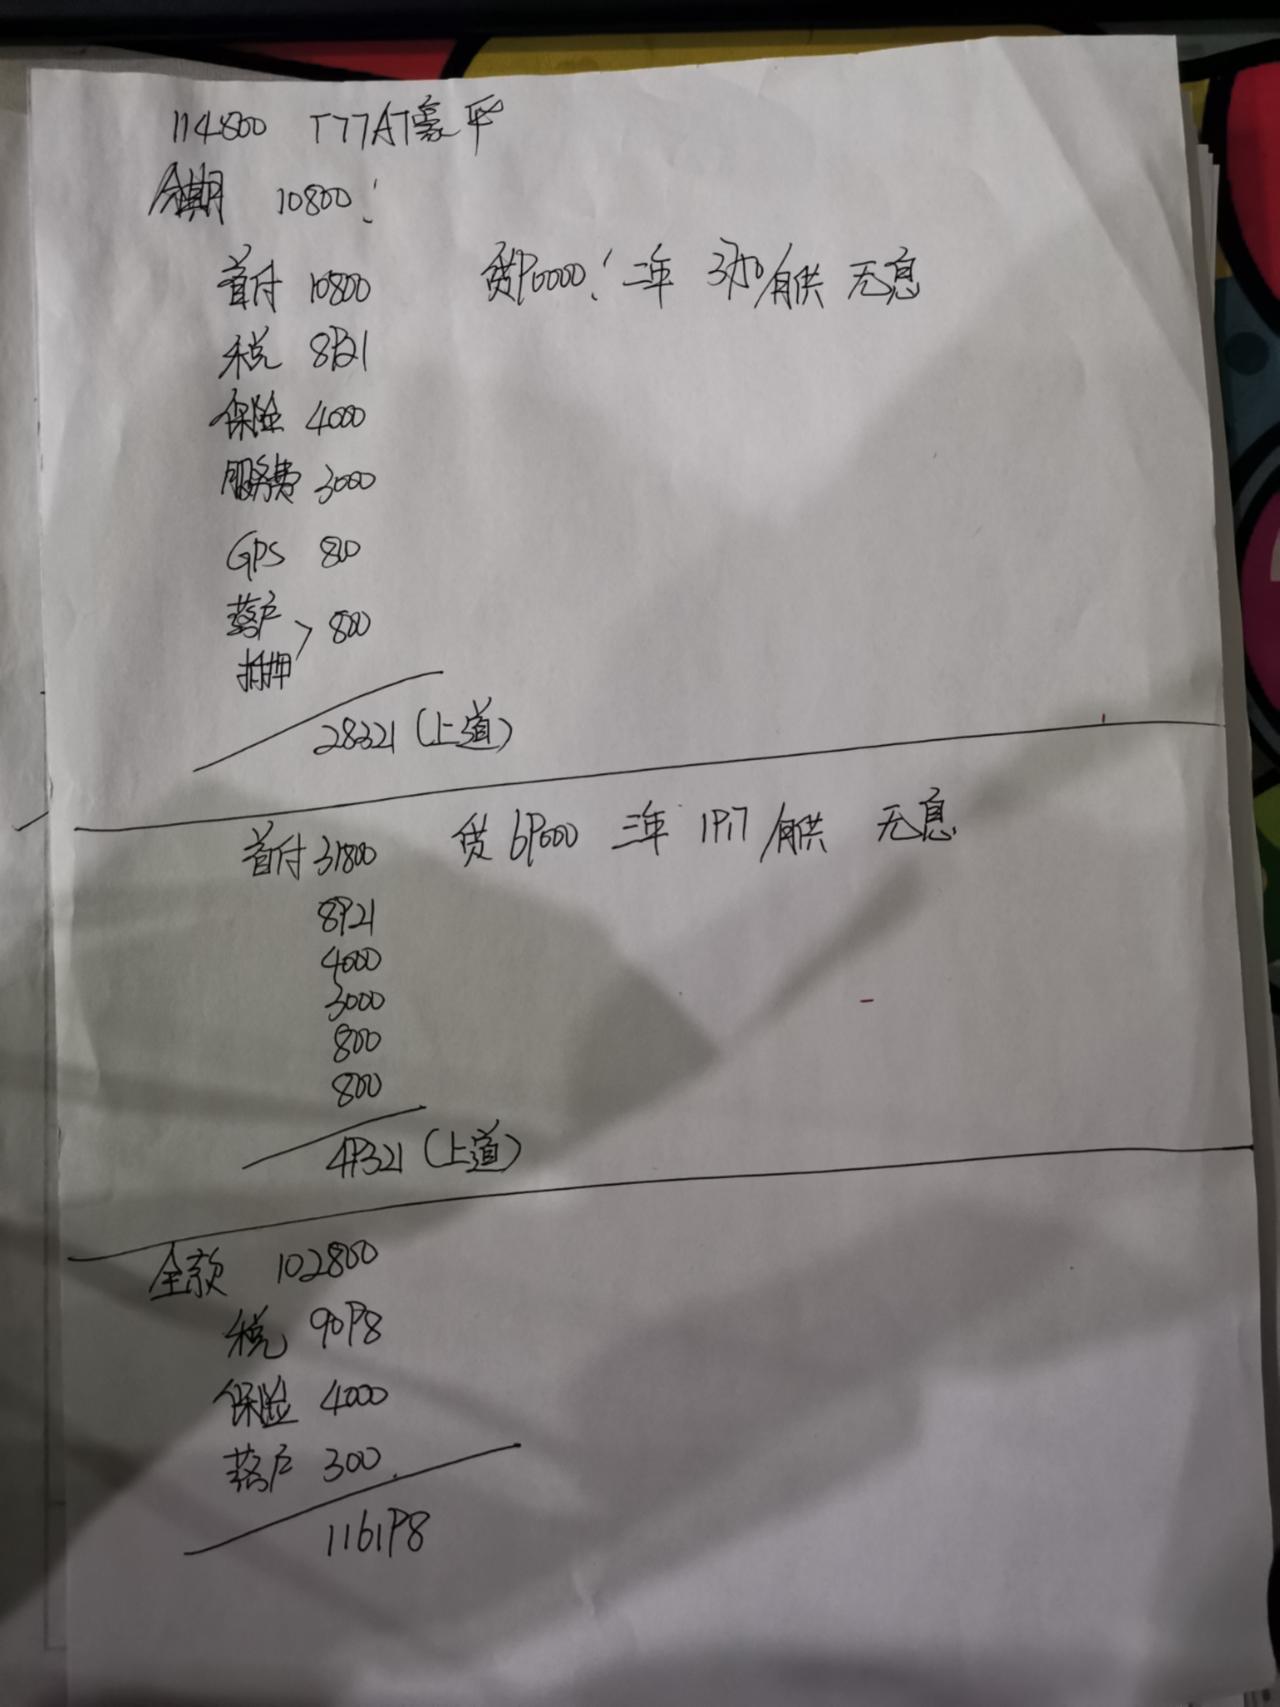 114800 T77AT豪华
分期 10800!
首付 10800 贷90000! 二年 3750/月供 无息
税 8921
保险 4000
服务费 3000
GPS 800
落户 > 800
抵押
28321 (上道)
首付 31800 贷 69000 三年 1917/月供 无息
8921
4000
3000
800
800
49321 (上道)
全款 102800
税 9098
保险 4000
落户 300
116198